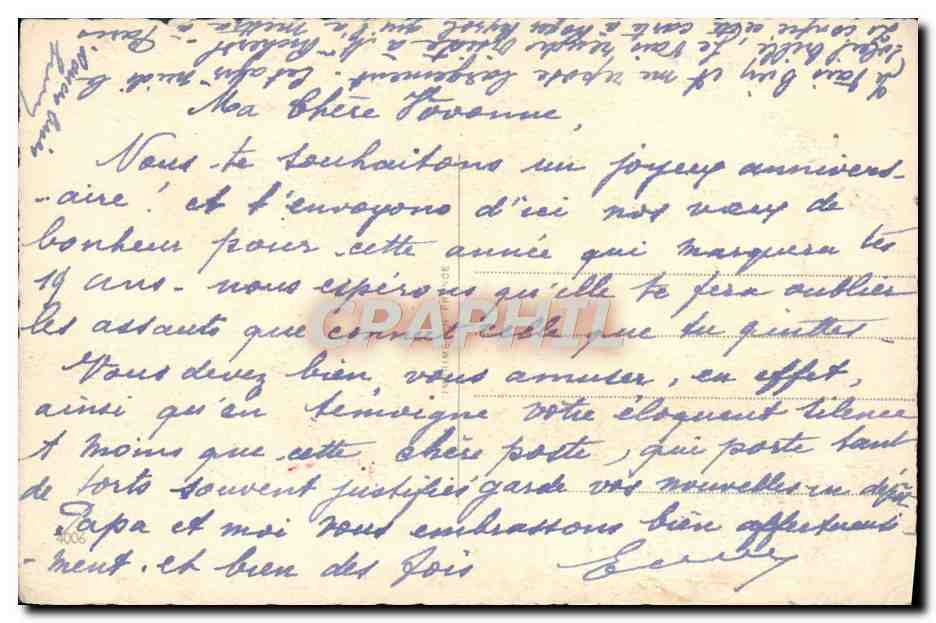 Ma Chère Yvonne,
Nous te souhaitons un joyeux annivers-
-aire! et t'envoyons d'ici nos vœux de
bonheur pour cette année qui marquera tes
19 ans - nous espérons qu'elle te fera oublier
les assauts que connut celle que tu quittes -
Vous devez bien vous amuser, en effet,
ainsi qu'en témoigne votre éloquent silence
A moins que cette chère poste, qui porte tant
de torts souvent justifiés garde vos nouvelles en dépôt
Papa et moi vous embrassons bien affectueuse
-ment et bien des fois
4006
CRAPHIL
Il fait bien et me repose largement. Cet après midi